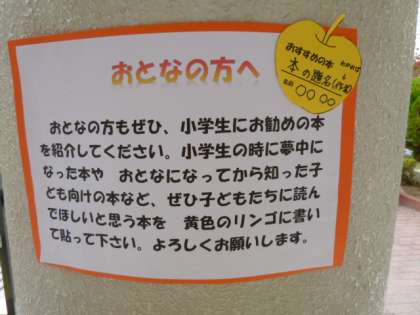 おとなの方へ
おすすめの本
本の題名(作者)
名前 ○○ ○○
おとなの方もぜひ、小学生にお勧めの本
を紹介してください。小学生の時に夢中に
なった本や　おとなになってから知った子
ども向けの本など、ぜひ子どもたちに読ん
でほしいと思う本を　黄色のリンゴに書い
て貼って下さい。よろしくお願いします。